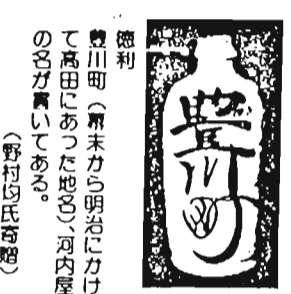 徳利
豊川町(幕末から明治にかけ
て高田にあった地名)、河内屋
の名が書いてある。
(野村均氏寄贈)
豊川町